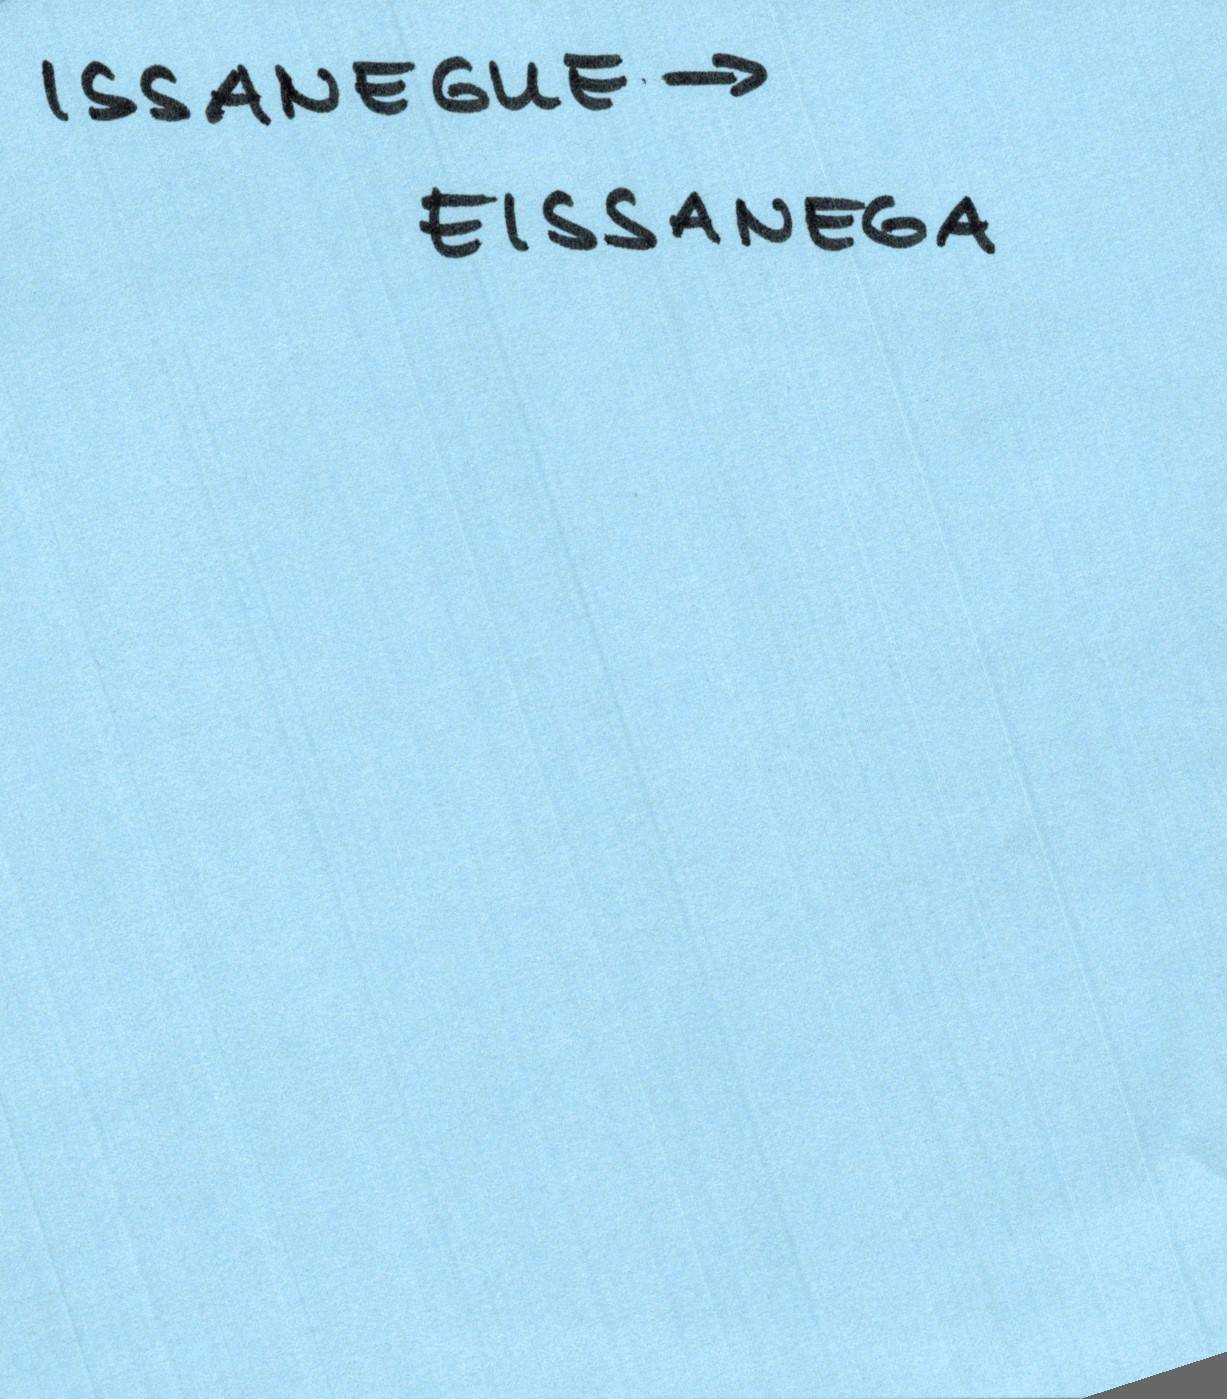 ISSANEGUE →
EISSANEGA